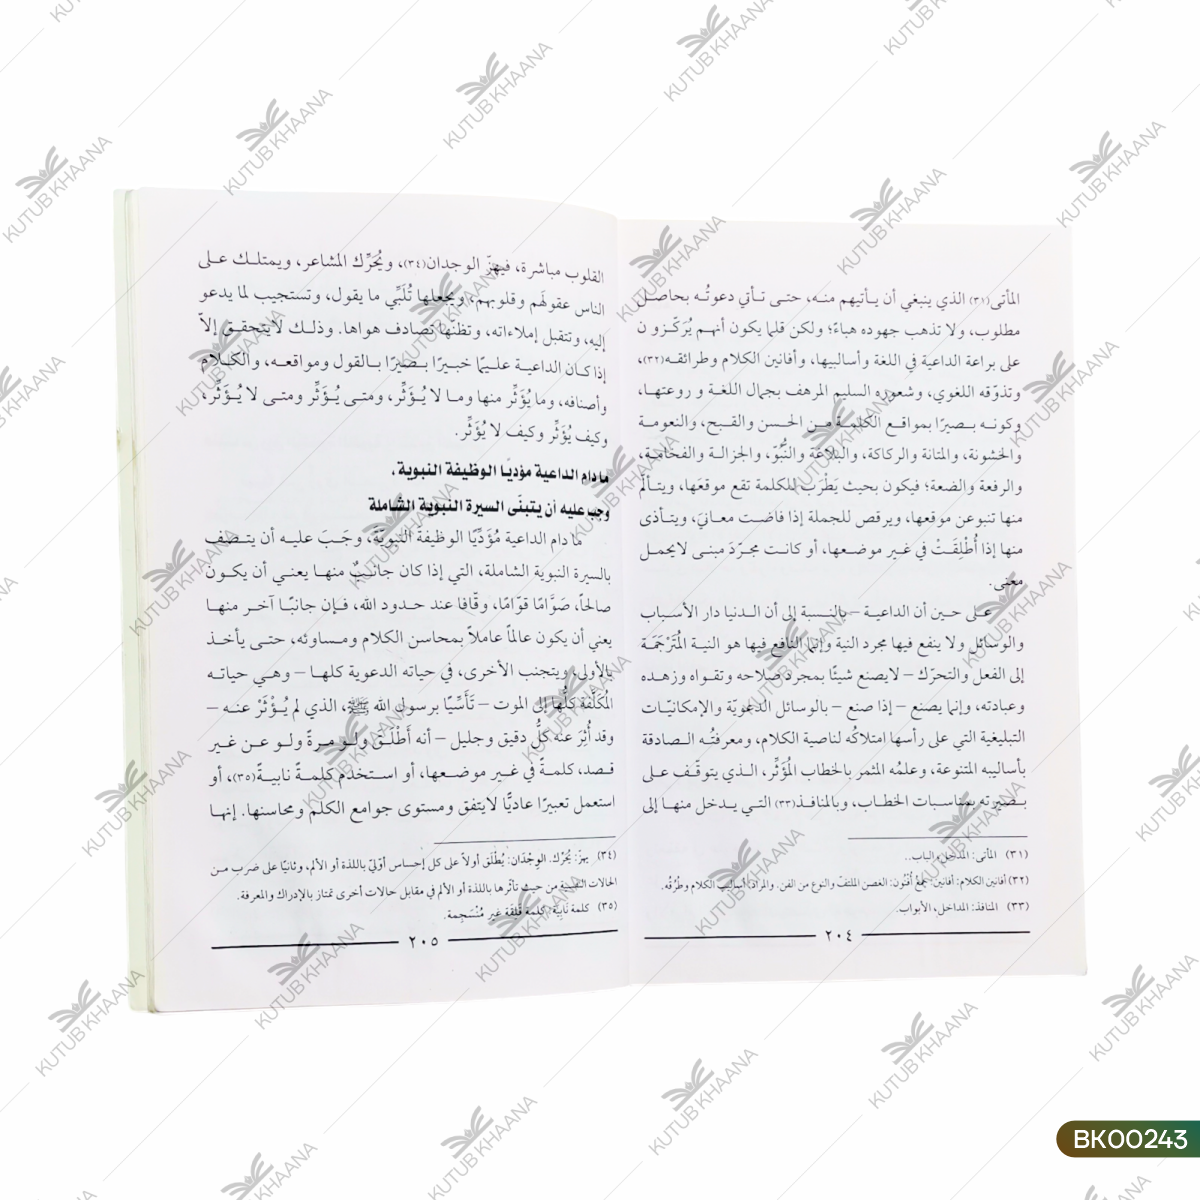 المأتى(٣١) الذي ينبغي أن يأتيهم منه، حتى تأتي دعوتُه بحاصل
مطلوب، ولا تذهب جهوده هباءً؛ ولكن قلما يكون أنهم يُرَكِّزون
على براعة الداعية في اللغة وأساليبها، وأفانين الكلام وطرائقه(٣٢)،
وتذوّقه اللغوي، وشعوره السليم المرهف بجمال اللغة و روعتها،
وكونه بصيرًا بمواقع الكلمة من الحسن والقبح، والنعومة
والخشونة، والمتانة والركاكة، والبلاغة والنُّبُوّ، والجزالة والفخامة،
والرفعة والضعة؛ فيكون بحيث يَطْرَب للكلمة تقع موقعَها، ويتألّم
منها تنبو عن موقعها، ويرقص للجملة إذا فاضت معانيَ، ويتأذى
منها إذا أُطْلِقَتْ في غير موضعها، أو كانت مجرّدَ مبنى لايحمل
معنى.
على حين أن الداعية – بالنسبة إلى أن الدنيا دار الأسباب
والوسائل ولا ينفع فيها مجرد النية وإنما النافع فيها هو النية المُتَرْجَمَة
إلى الفعل والتحرّك – لايصنع شيئًا بمجرد صلاحه وتقواه وزهده
وعبادته، وإنما يصنع – إذا صنع – بالوسائل الدعويّة والإمكانيّات
التبليغية التي على رأسها امتلاكُه لناصية الكلام، ومعرفتُه الصادقة
بأساليبه المتنوعة، وعلمُه المثمر بالخطاب المُؤَثِّر، الذي يتوقّف على
بصيرته بمناسبات الخطاب، وبالمنافذ(٣٣) التي يدخل منها إلى
(٣١) المأتى: المدخل والباب..
(٣٢) أفانين الكلام: أفانين: جَمْعُ أُفْنُون: الغصن الملتفّ والنوع من الفن. والمراد أساليب الكلام وطُرُقُه.
(٣٣) المنافذ: المداخل، الأبواب.
٢٠٤
القلوب مباشرة، فيهزّ الوجدان(٣٤)، ويُحَرِّك المشاعر، ويمتلك على
الناس عقولَهم وقلوبهم، ويجعلها تُلَبِّي ما يقول، وتستجيب لما يدعو
إليه، وتتقبل إملاءاته، وتظنّها تصادف هواها. وذلك لايتحقق إلاّ
إذا كان الداعية عليمًا خبيرًا بصيرًا بالقول ومواقعه، والكلام
وأصنافه، وما يُؤَثِّر منها وما لا يُؤَثِّر، ومتى يُؤَثِّر ومتى لا يُؤَثِّر،
وكيف يُؤَثِّر وكيف لا يُؤَثِّر.
ما دام الداعية مؤديًا الوظيفة النبوية،
وجب عليه أن يتبنّى السيرة النبوية الشاملة
ما دام الداعية مُؤَدِّيًا الوظيفة النبويّةَ، وجَبَ عليه أن يتصف
بالسيرة النبوية الشاملة، التي إذا كان جانبٌ منها يعني أن يكون
صالحًا، صَوَّامًا قوّامًا، وقّافا عند حدود الله، فإن جانبًا آخر منها
يعني أن يكون عالماً عاملاً بمحاسن الكلام ومساوئه، حتى يأخذ
بالأولى، ويتجنب الأخرى، في حياته الدعوية كلها – وهي حياته
المُكَلَّفَة كلُّها إلى الموت – تَأَسِّيًا برسول الله ﷺ، الذي لم يُؤْثَرْ عنه –
وقد أُثِرَ عنه كلُّ دقيق وجليل – أنه أَطْلَقَ ولو مرةً ولو عن غير
قصد، كلمةً في غير موضعها، أو استخدم كلمةً نابيةً(٣٥)، أو
استعمل تعبيرًا عاديًّا لايتفق ومستوى جوامع الكلم ومحاسنها. إنها
(٣٤) يهزّ: يُحَرِّك. الوِجْدَان: يُطْلَق أولاً على كل إحساس أوّليّ باللذة أو الألم، وثانيًا على ضرب من
الحالات النفسية من حيث تأثّرها باللذة أو الألم في مقابل حالات أخرى تمتاز بالإدراك والمعرفة.
(٣٥) كلمة نَابِيَة: كلمة قَلِقَة غير مُنْسَجِمة.
٢٠٥
KUTUB KHAANA
BK00243